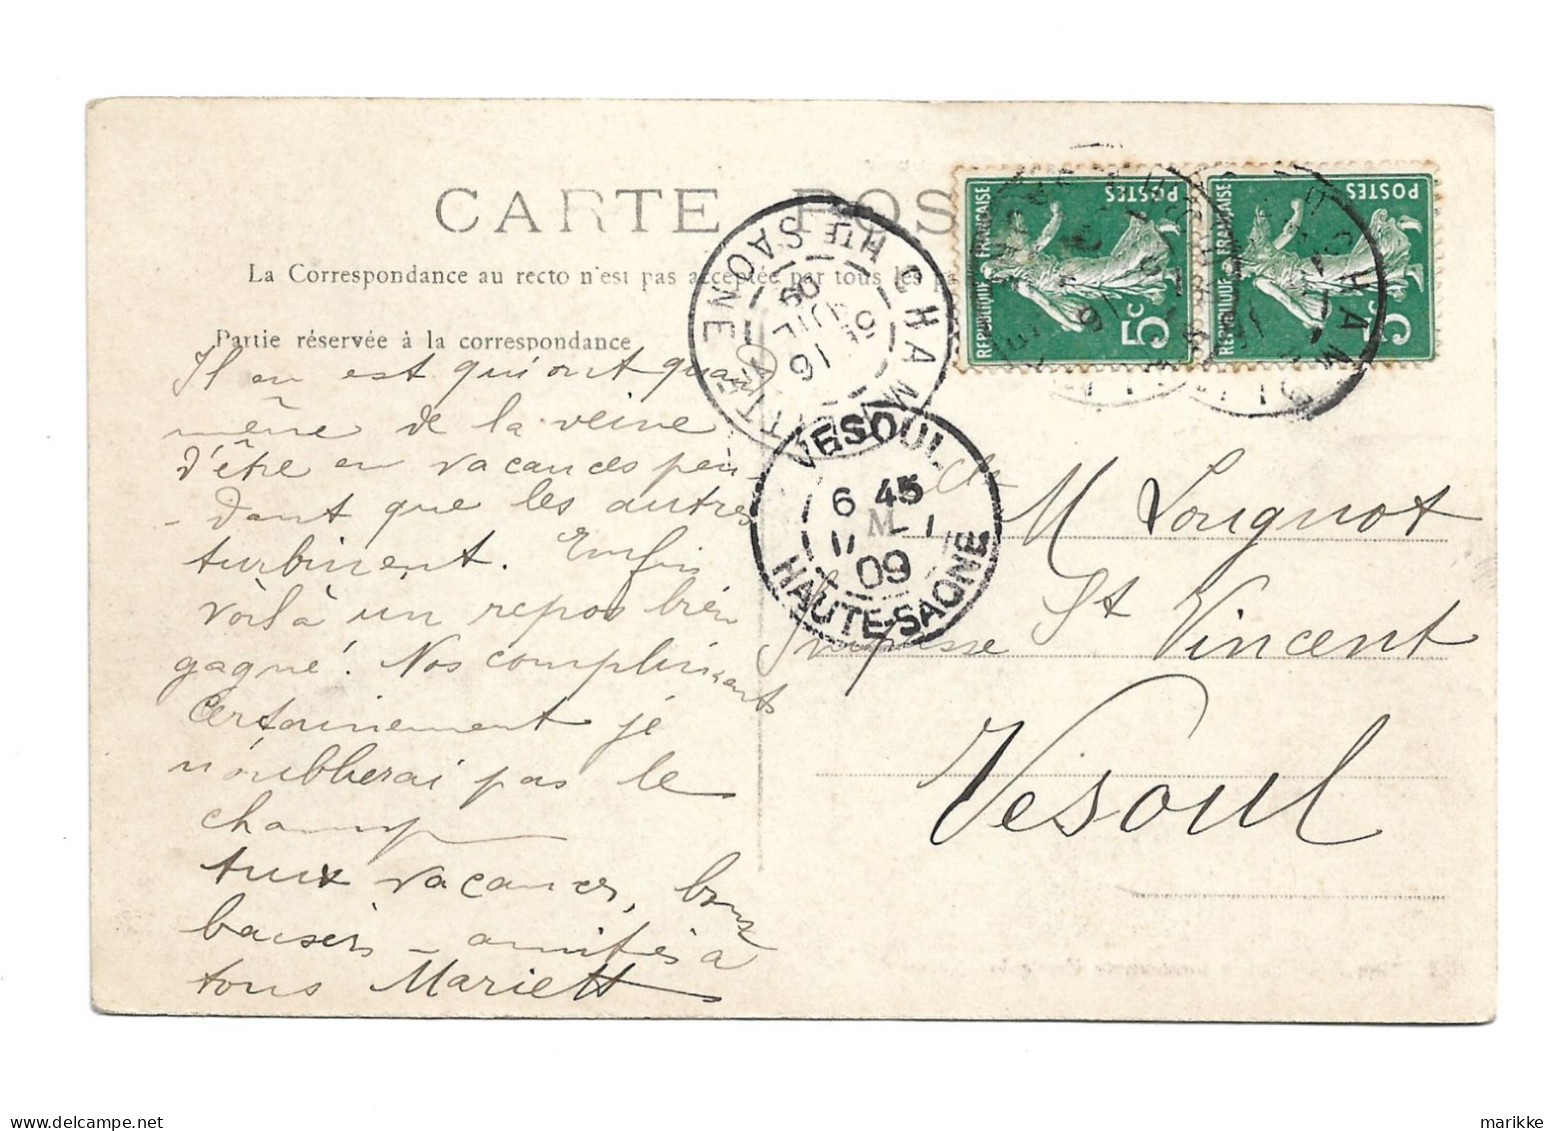 CARTE POS
La Correspondance au recto n'est pas acceptée par tous les pa
Partie réservée à la correspondance
Il en est qui ont quand
même de la veine
d'être en vacances pen-
-dant que les autres
turbinent. Enfin
voilà un repos bien
gagné! Nos compliments
certainement je
n'oublierai pas le
champ
aux vacances, bons
baisers - amitiés à
tous Mariett
CHAM
HTE SAONE
16
JUIL
09
VESOUL
6 45
M
11 - 1
09
HAUTE-SAONE
POSTES
REPUBLIQUE FRANÇAISE
5c
POSTES
REPUBLIQUE FRANÇAISE
5c
CHAM
Mlle M Lougnot
Impasse St Vincent
Vesoul
marikke